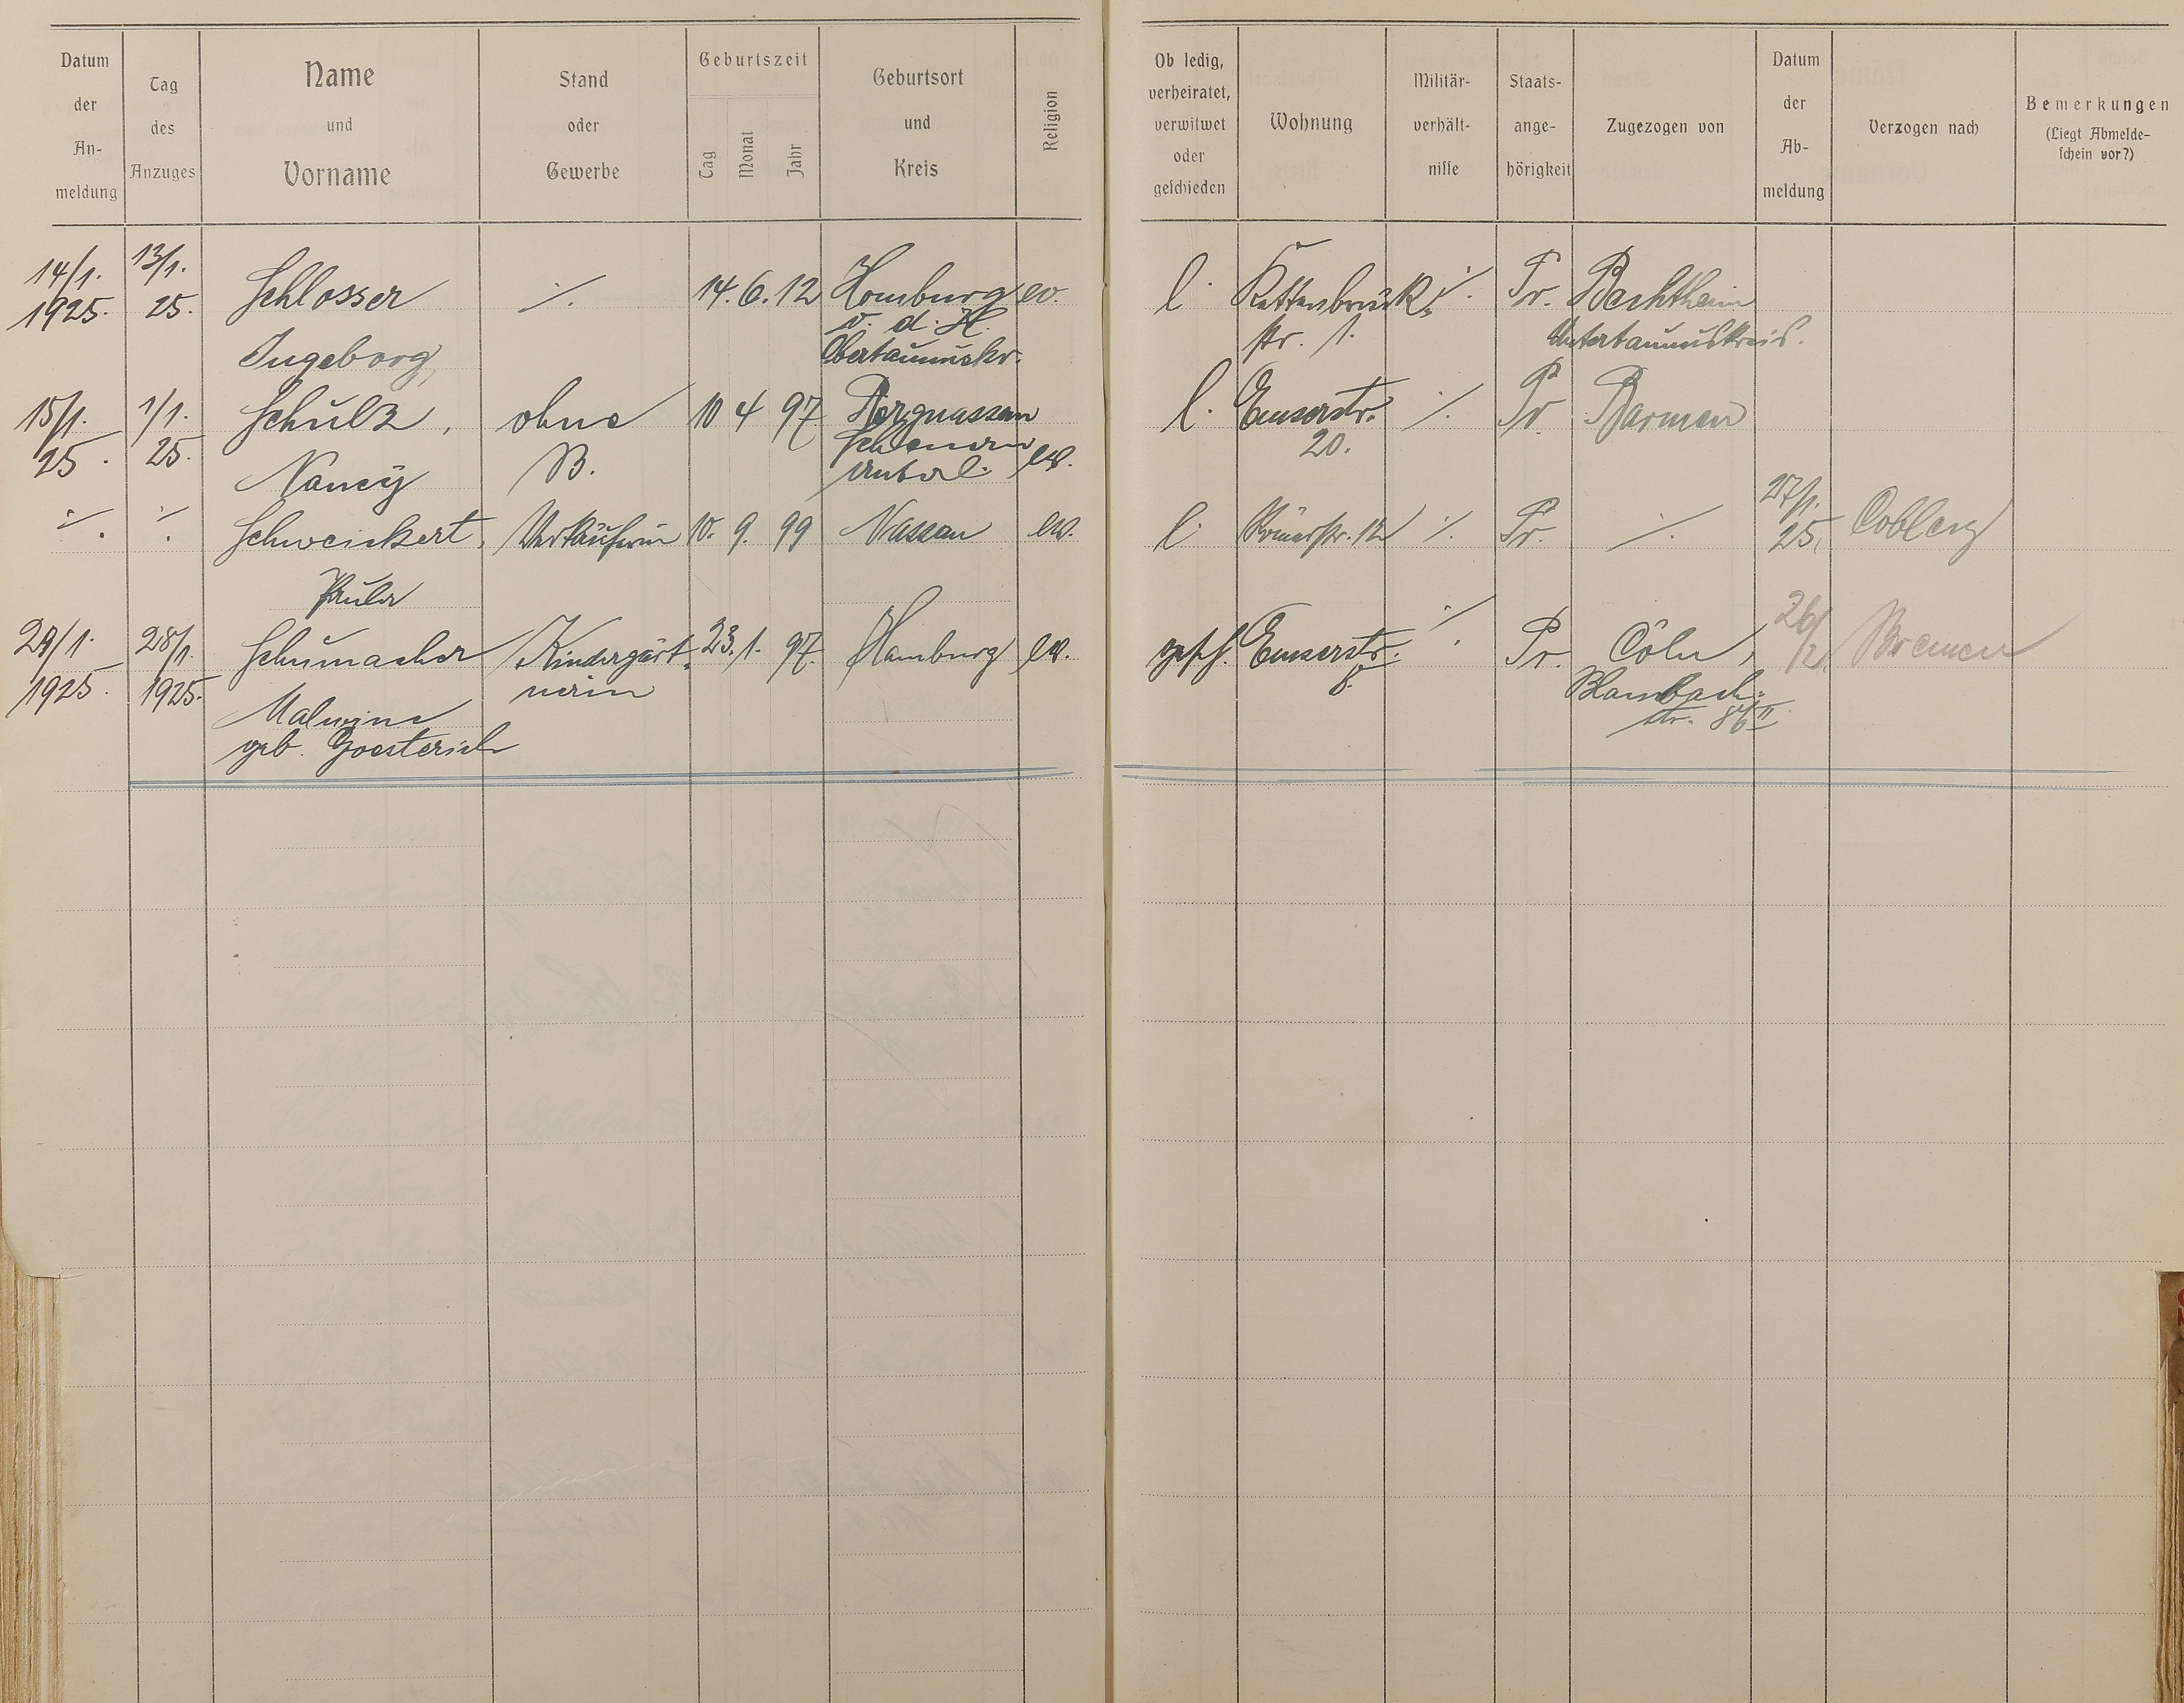 Datum der Anmeldung
Tag des Anzuges
Name und Vorname
Stand oder Gewerbe
Geburtszeit
Tag
Monat
Jahr
Geburtsort und Kreis
Religion
Ob ledig, verheiratet, verwitwet oder geschieden
Wohnung
Militär-verhält-nisse
Staats-ange-hörigkeit
Zugezogen von
Datum der Ab-meldung
Verzogen nach
Bemerkungen
(Liegt Abmelde-schein vor?)
14/1. 1925.
13/1. 25.
Schlosser
Ingeborg,
./.
14. 6. 12
Homburg
v. d. H.
Obertaunuskr.
ev.
l.
Kettenbrück-
str. 1.
./.
Pr.
Bechtheim
Untertaunuskreis.
15/1. 25.
1/1. 25.
Schulz,
Nancy
ohne
B.
10 4 97
ev.
l.
Emserstr.
20.
./.
Pr.
Barmen
./.
./.
Schweickert,
Paula
Verkäuferin
10. 9. 99
Nassau
ev.
l.
Römerstr. 12
./.
Pr.
./.
27/1. 25.
Coblenz
29/1. 1925.
28/1. 1925.
Schumacher
Malwine
geb. Goesterich
Kindergärt-
nerin
23. 1. 97.
Hamburg
ev.
gesch.
Emserstr.
8.
./.
Pr.
Cöln,
str. 86 II
26/2.
Bremen